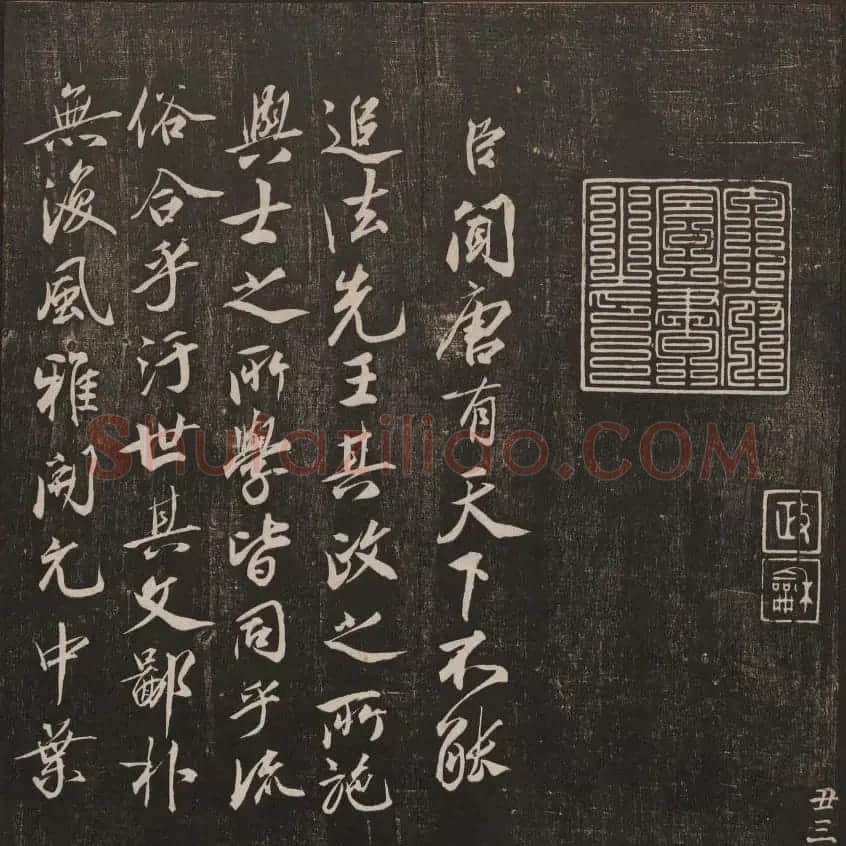 政龢
丑三
臣聞唐有天下不能
追法先王其政之所施
與士之所學皆同乎流
俗合乎汙世其文鄙朴
無復風雅開元中葉
Shufaziliao.COM